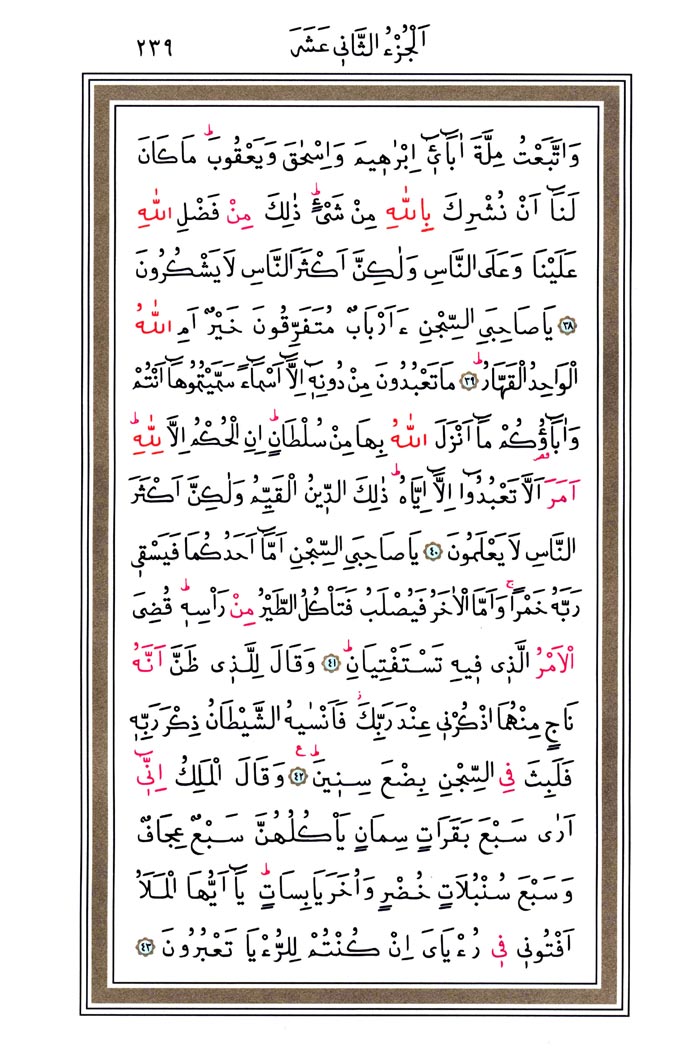 اَلْجُزْءُ الثَّانٖي عَشَرَ ٢٣٩
وَاتَّبَعْتُ مِلَّةَ اٰبَٓاءٖٓي اِبْرٰهٖيمَ وَاِسْحٰقَ وَيَعْقُوبَۜ مَا كَانَ
لَنَٓا اَنْ نُشْرِكَ بِاللّٰهِ مِنْ شَيْءٍۜ ذٰلِكَ مِنْ فَضْلِ اللّٰهِ
عَلَيْنَا وَعَلَى النَّاسِ وَلٰكِنَّ اَكْثَرَ النَّاسِ لَا يَشْكُرُونَ
﴿٣٨﴾ يَا صَاحِبَيِ السِّجْنِ ءَاَرْبَابٌ مُتَفَرِّقُونَ خَيْرٌ اَمِ اللّٰهُ
الْوَاحِدُ الْقَهَّارُۜ ﴿٣٩﴾ مَا تَعْبُدُونَ مِنْ دُونِهٖٓ اِلَّٓا اَسْمَٓاءً سَمَّيْتُمُوهَٓا اَنْتُمْ
وَاٰبَٓاؤُكُمْ مَٓا اَنْزَلَ اللّٰهُ بِهَا مِنْ سُلْطَانٍۜ اِنِ الْحُكْمُ اِلَّا لِلّٰهِۜ
اَمَرَ اَلَّا تَعْبُدُٓوا اِلَّٓا اِيَّاهُۜ ذٰلِكَ الدّٖينُ الْقَيِّمُ وَلٰكِنَّ اَكْثَرَ
النَّاسِ لَا يَعْلَمُونَ ﴿٤٠﴾ يَا صَاحِبَيِ السِّجْنِ اَمَّٓا اَحَدُكُمَا فَيَسْقٖي
رَبَّهُ خَمْرًاۚ وَاَمَّا الْاٰخَرُ فَيُصْلَبُ فَتَأْكُلُ الطَّيْرُ مِنْ رَأْسِهٖۜ قُضِيَ
الْاَمْرُ الَّذٖي فٖيهِ تَسْتَفْتِيَانِۜ ﴿٤١﴾ وَقَالَ لِلَّذٖي ظَنَّ اَنَّهُ
نَاجٍ مِنْهُمَا اذْكُرْنٖي عِنْدَ رَبِّكَۘ فَاَنْسٰيهُ الشَّيْطَانُ ذِكْرَ رَبِّهٖ
فَلَبِثَ فِي السِّجْنِ بِضْعَ سِنٖينَۜ ﴿٤٢﴾ ع وَقَالَ الْمَلِكُ اِنّٖٓي
اَرٰى سَبْعَ بَقَرَاتٍ سِمَانٍ يَأْكُلُهُنَّ سَبْعٌ عِجَافٌ
وَسَبْعَ سُنْبُلَاتٍ خُضْرٍ وَاُخَرَ يَابِسَاتٍۜ يَٓا اَيُّهَا الْمَلَاُ
اَفْتُونٖي فٖي رُءْيَايَ اِنْ كُنْتُمْ لِلرُّءْيَا تَعْبُرُونَ ﴿٤٣﴾